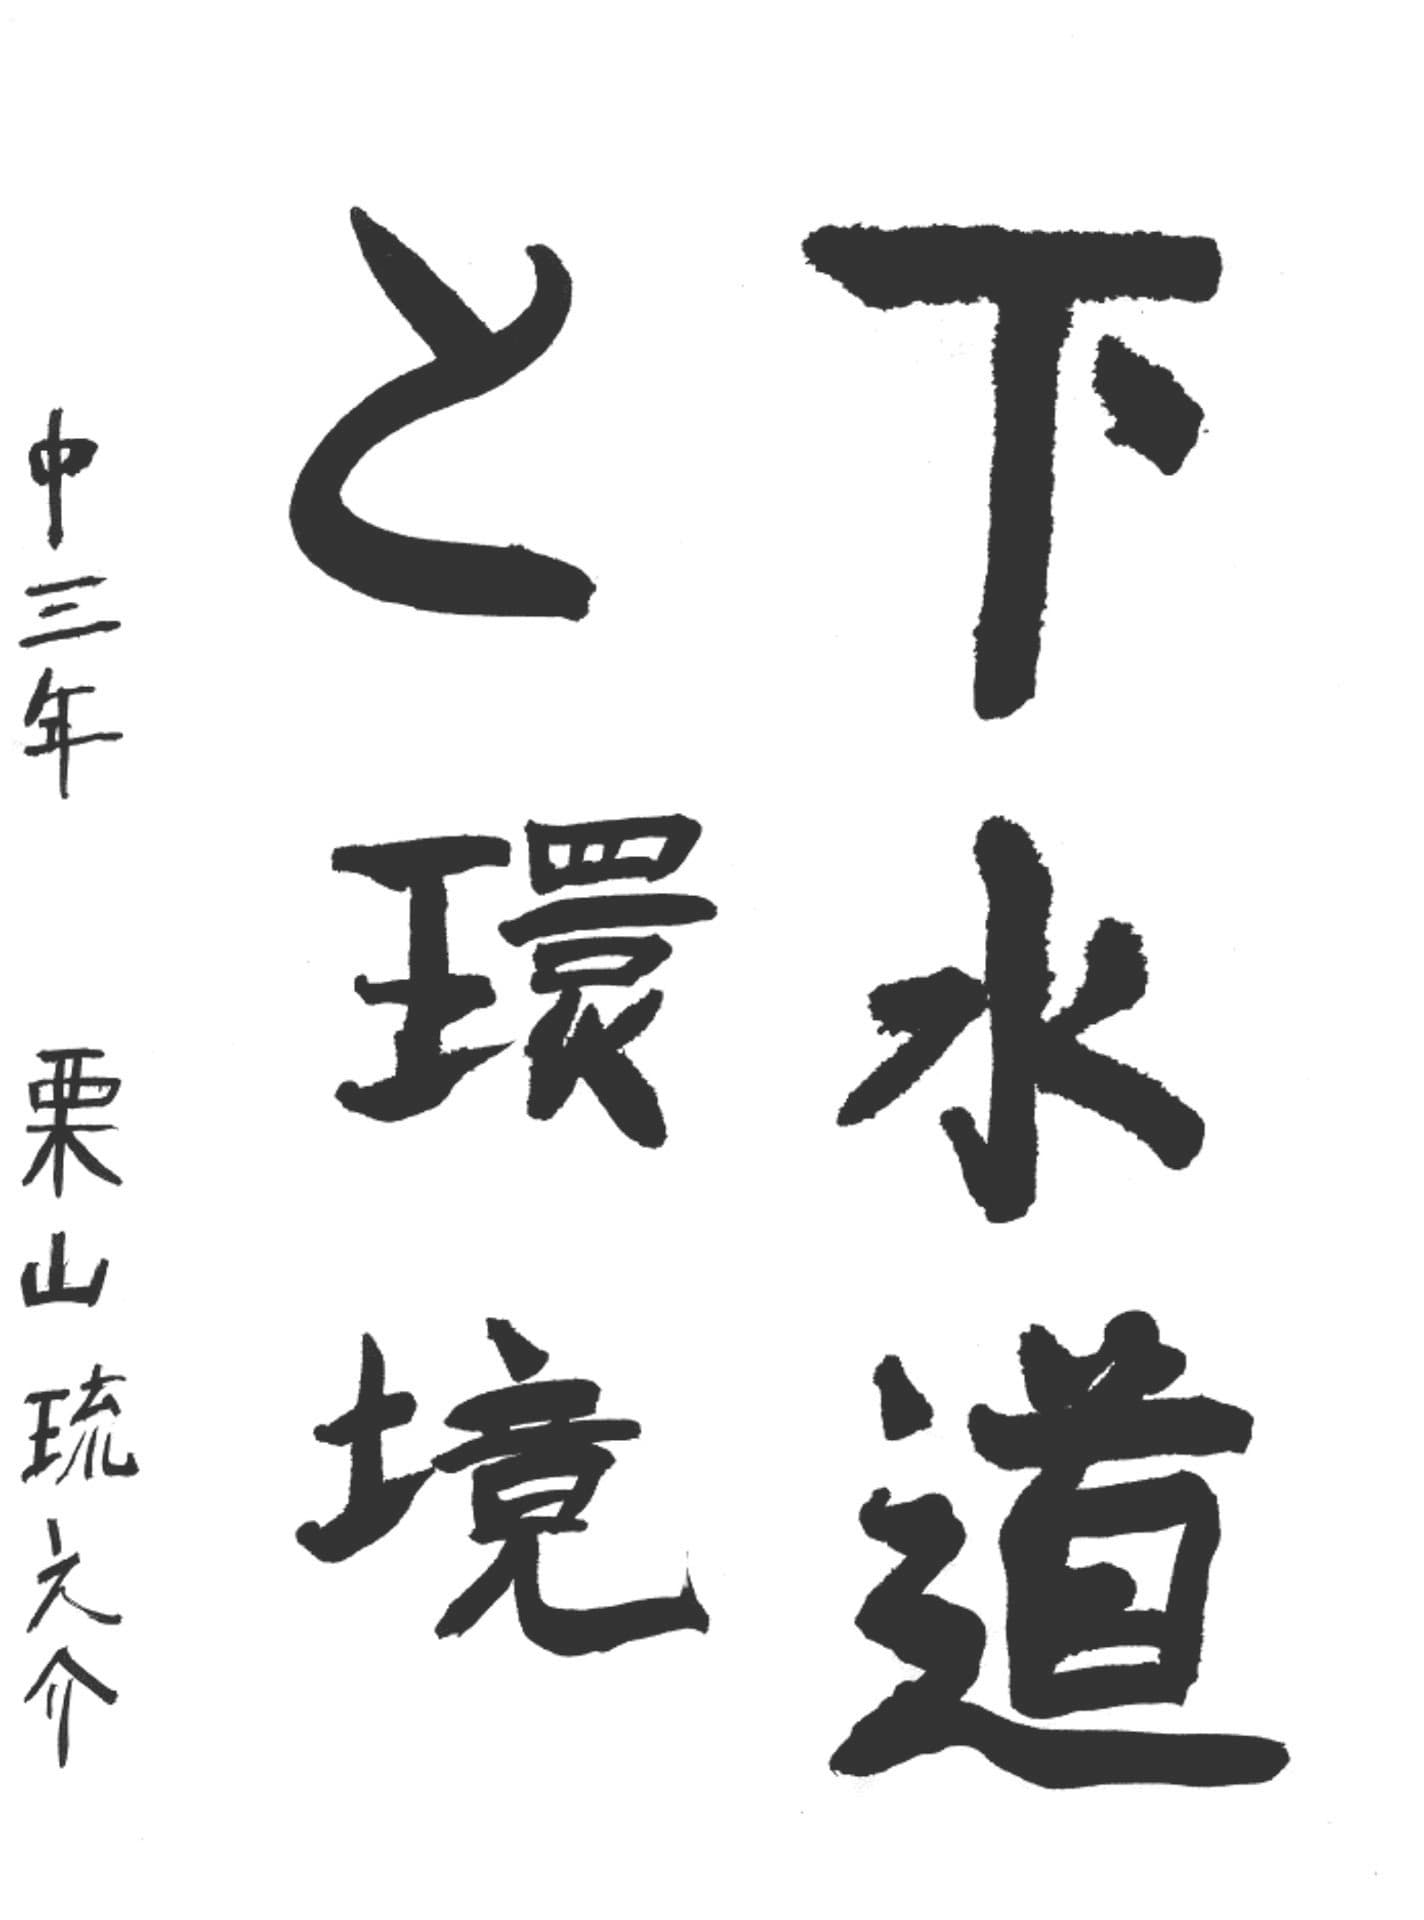 下水道
と環境
中三年 栗山琉之介